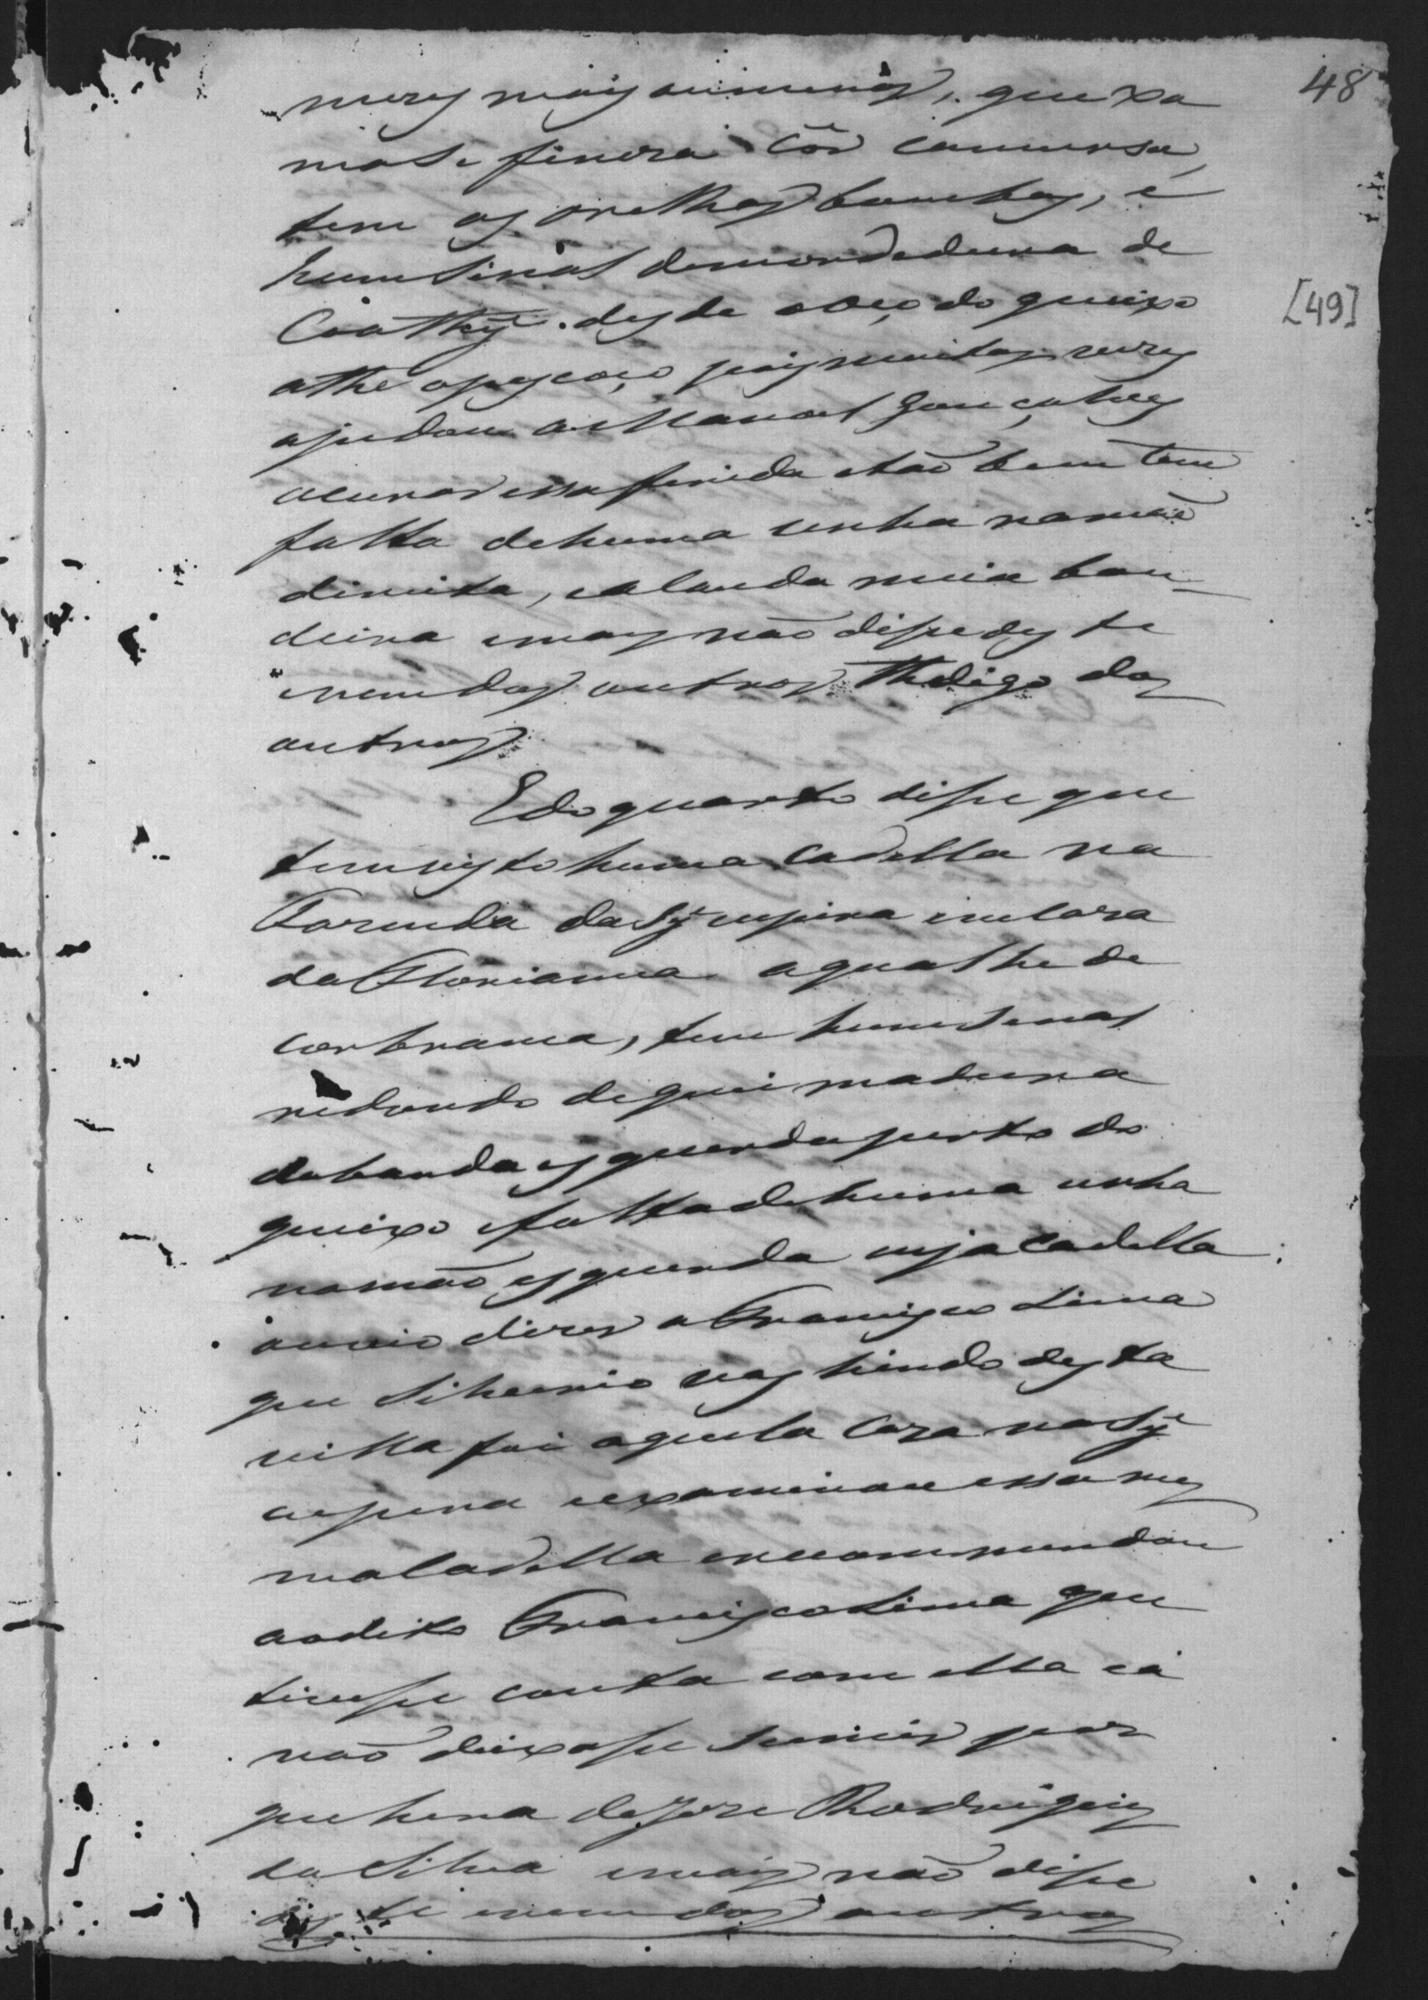 48
[49]
mezes mais ou menos, que xa
mase finera côr camursa,
tem as orelhas bambas, e
hum sinal demordedura de
Coathy. desde o beiço do queixo
athe opescoço, pois muitas vezes
ajudou a Manoel Gonçalves
acurar essa ferida e tão bem tem
falta dehuma unha namão
direita, e alanda meia ban
deira emais não dise deste
enem dos outros Thedigo dos
outros.
E do quarto dise que
temvisto huma cadella na
Fazenda da Sycupira emcaza
da Florianna aqual he de
cor branca, tem hum sinal
redondo de queimadura
dabanda esquerda perto do
queixo efalta dehuma unha
namão esquerda cuja cadella
ouvio dizer a Francisco Lima
que Silverio vas hindo desta
villa foi aquela caza na Sy
cupira eexaminou essa mes
ma cadella erecomendou
aodito Francisco Lima que
tivese conta com ella e a
não deixase sumir por
que hera de Joze Rodrigues
da Silva emais não dise
deste enem dos outros